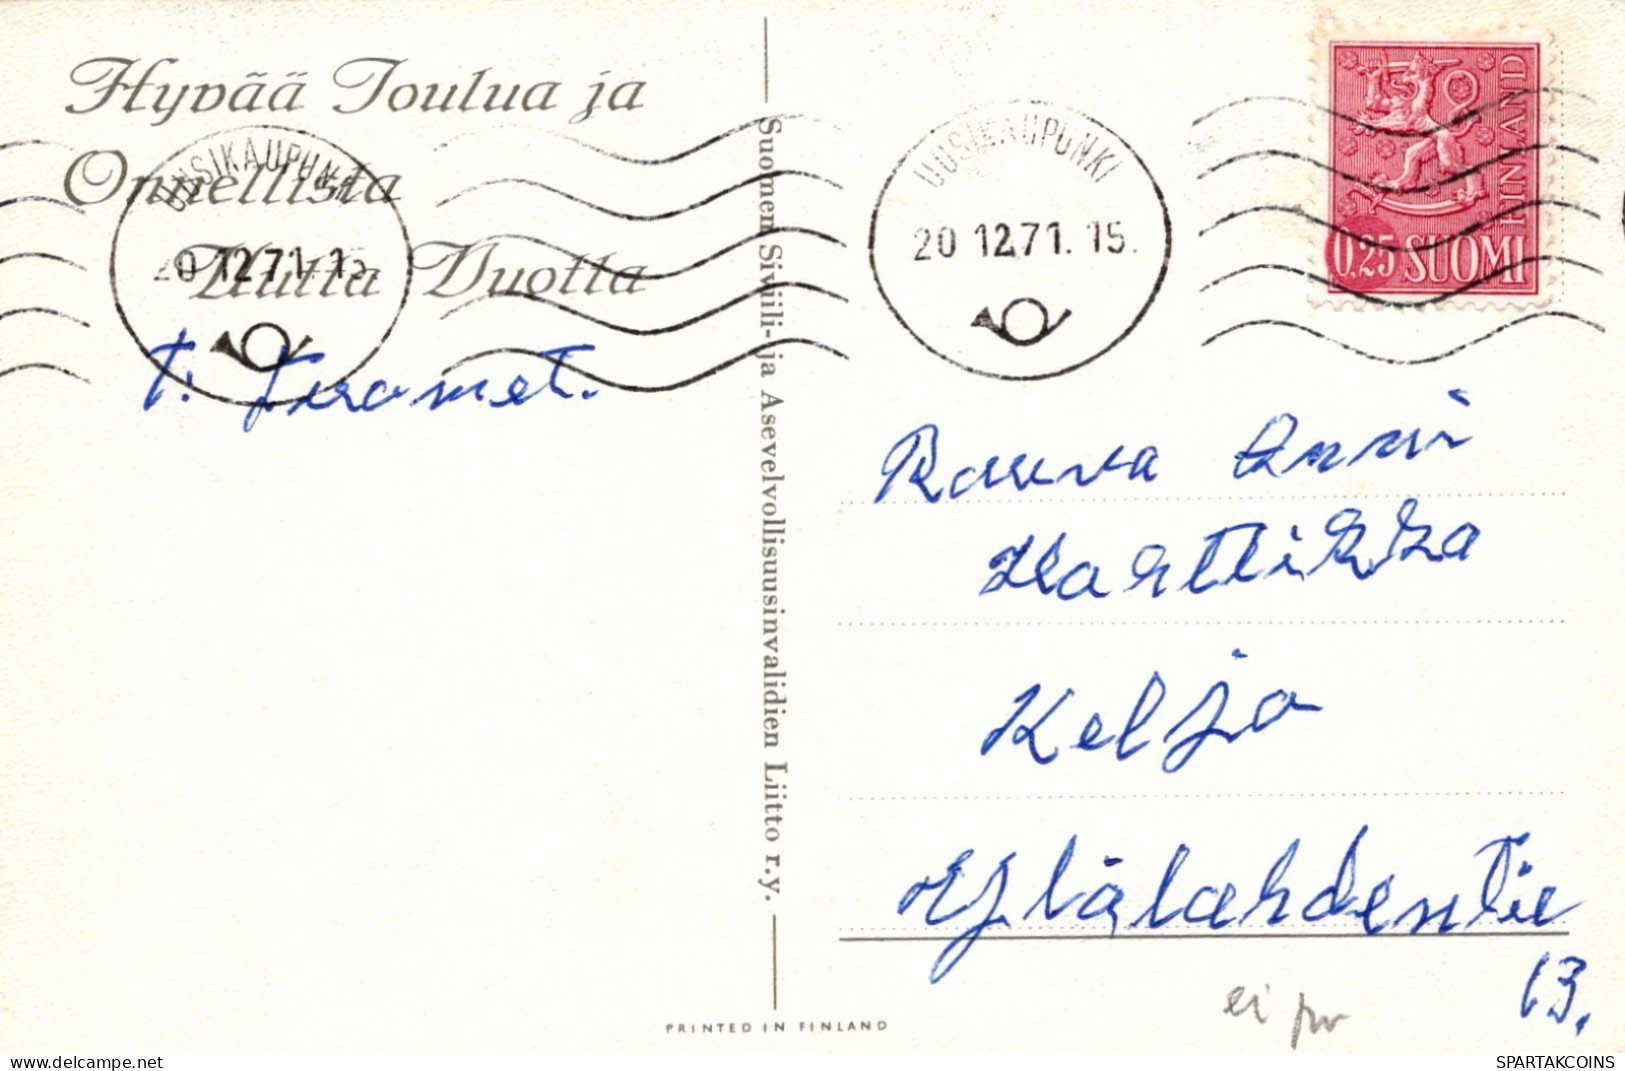 Hyvää Joulua ja
Onnellista
Uutta Vuotta
UUSIKAUPUNKI
20 12.71. 15
T.
Suomen Siviili- ja Asevelvollisuusinvalidien Liitto r.y.
PRINTED IN FINLAND
UUSIKAUPUNKI
20 12.71. 15.
FINLAND
0,25 SUOMI
Rauva Anni
Harttikka
Kelja
Ylälahdentie
13.
ei pv
SPARTAKCOINS